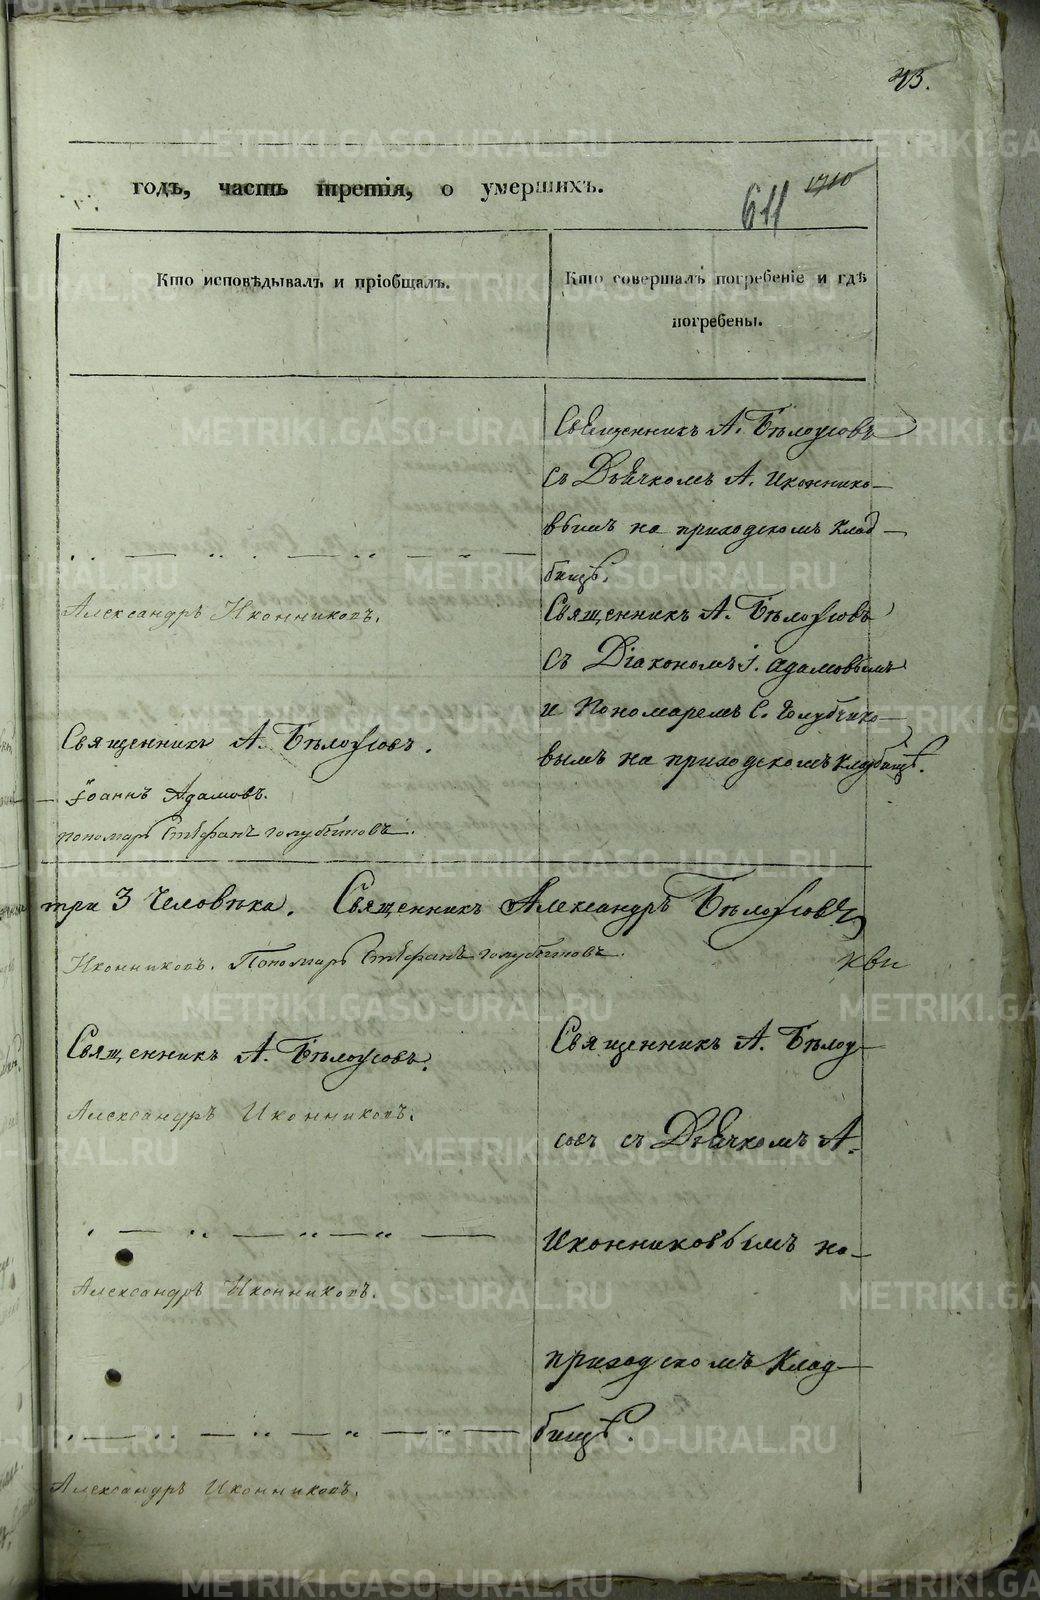 годъ, часть третія, о умершихъ.
611
Кто исповѣдывалъ и пріобщалъ.
Кто совершалъ погребеніе и гдѣ
погребены.
Священникъ А. Бѣлоусовъ
съ Дьячкомъ А. Иконнико–
вымъ на приходскомъ клад–
бищѣ.
Александръ Иконниковъ.
Священникъ А. Бѣлоусовъ
съ Діакономъ І. Адамовымъ
и Пономаремъ С. Голубчико–
вымъ на приходскомъ кладбищѣ.
Священникъ А. Бѣлоусовъ.
Іоаннъ Адамовъ.
пономарь Стефанъ голубчиковъ.
три 3 человѣка. Священникъ Александръ Бѣлоусовъ
Иконниковъ. Пономарь Стефанъ голубчиковъ.
Священникъ А. Бѣлоусовъ.
Александръ Иконниковъ.
Священникъ А. Бѣлоу–
совъ съ Дьячкомъ А.
Иконниковымъ на–
приходскомъ клад–
бищѣ.
Александръ Иконниковъ.
Александръ Иконниковъ.
METRIKI.GASO-URAL.RU